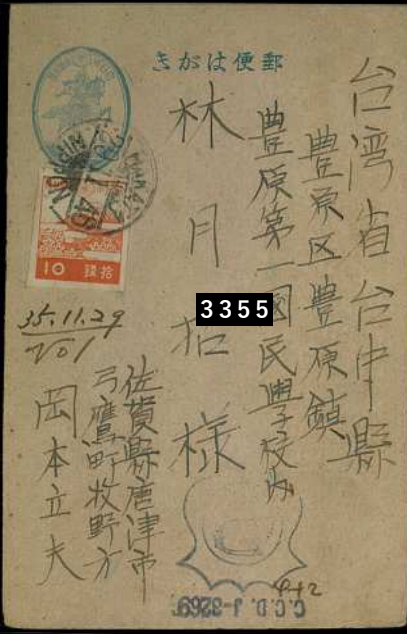 郵便はがき
台湾省台中縣
豊原区豊原鎮
豊原第一國民學校内
林月招様
3355
拾錢
10
35.11.29
佐賀縣唐津市
弓鷹町牧野方
岡本立夫
C.C.D. J-3269